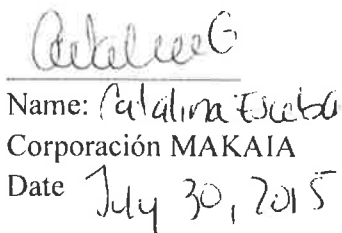 Name: Catalina Escobar
Corporación MAKAIA
Date July 30, 2015